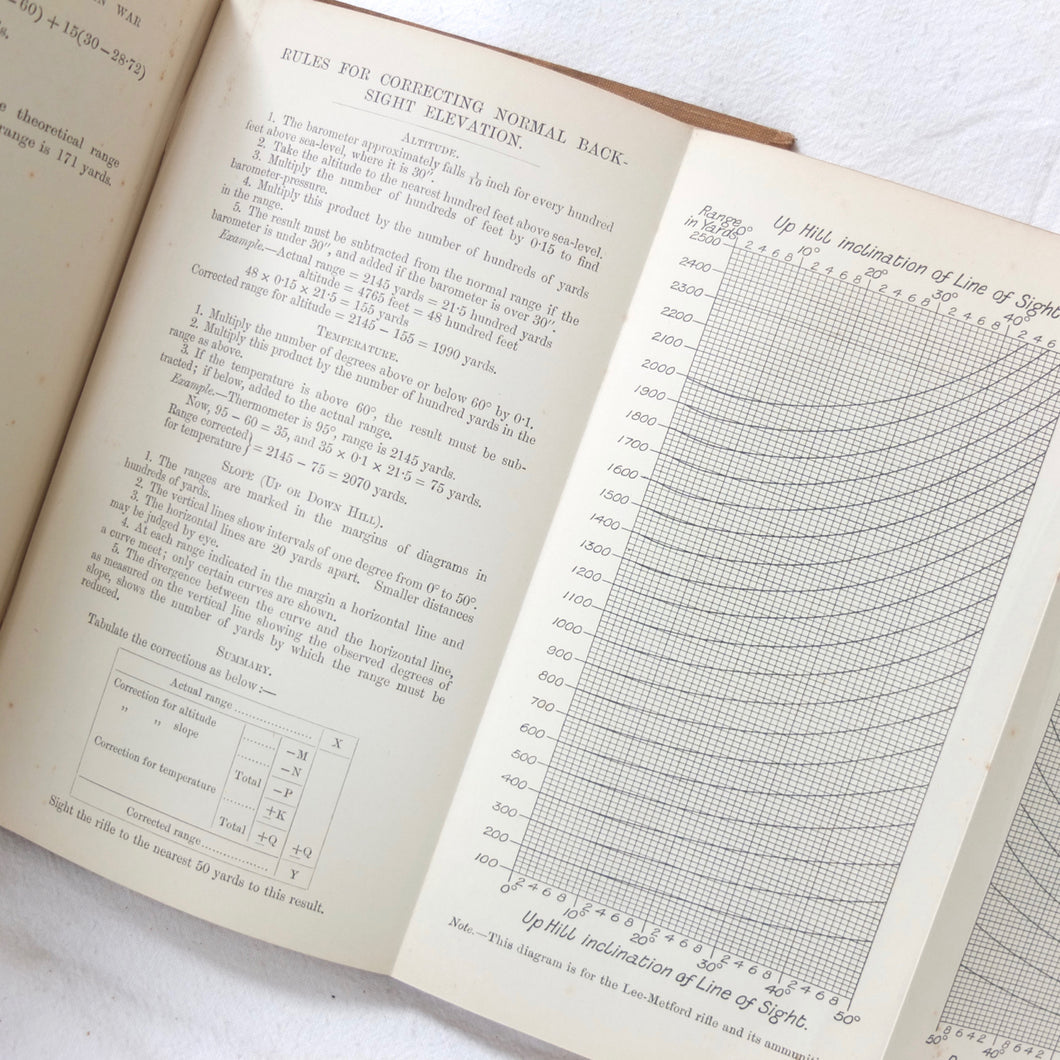 N WAR
–60) + 15(30–28·72)
s.
e theoretical range
range is 171 yards.
RULES FOR CORRECTING NORMAL BACK-
SIGHT ELEVATION.
ALTITUDE.
1. The barometer approximately falls 1/10 inch for every hundred
feet above sea-level, where it is 30″.
2. Take the altitude to the nearest hundred feet above sea-level.
3. Multiply the number of hundreds of feet by 0·15 to find
barometer-pressure.
4. Multiply this product by the number of hundreds of yards
in the range.
5. The result must be subtracted from the normal range if the
barometer is under 30″, and added if the barometer is over 30″.
Example.—Actual range = 2145 yards = 21·5 hundred yards
altitude = 4765 feet = 48 hundred feet
48 × 0·15 × 21·5 = 155 yards
Corrected range for altitude = 2145 – 155 = 1990 yards.
TEMPERATURE.
1. Multiply the number of degrees above or below 60° by 0·1.
2. Multiply this product by the number of hundred yards in the
range as above.
3. If the temperature is above 60°, the result must be sub-
tracted; if below, added to the actual range.
Example.—Thermometer is 95°, range is 2145 yards.
Now, 95 – 60 = 35, and 35 × 0·1 × 21·5 = 75 yards.
Range corrected
for temperature } = 2145 – 75 = 2070 yards.
SLOPE (UP OR DOWN HILL).
1. The ranges are marked in the margins of diagrams in
hundreds of yards.
2. The vertical lines show intervals of one degree from 0° to 50°.
3. The horizontal lines are 20 yards apart. Smaller distances
may be judged by eye.
4. At each range indicated in the margin a horizontal line and
a curve meet; only certain curves are shown.
5. The divergence between the curve and the horizontal line,
as measured on the vertical line showing the observed degrees of
slope, shows the number of yards by which the range must be
reduced.
SUMMARY.
Tabulate the corrections as below :—
Actual range .................... X
Correction for altitude ......... –M
" " slope ......... –N
Total –P
Correction for temperature ......... ±K
Total ±Q ±Q
Corrected range.................... Y
Sight the rifle to the nearest 50 yards to this result.
Up Hill inclination of Line of Sight
Range
in Yards
0° 2 4 6 8 10° 2 4 6 8 20° 2 4 6 8 30° 2 4 6 8 40° 2 4 6
2500
2400
2300
2200
2100
2000
1900
1800
1700
1600
1500
1400
1300
1200
1100
1000
900
800
700
600
500
400
300
200
100
0° 2 4 6 8 10° 2 4 6 8 20° 2 4 6 8 30° 2 4 6 8 40° 2 4 6 8 50°
Up Hill inclination of Line of Sight.
Note.—This diagram is for the Lee-Metford rifle and its ammuniti
50° 8 6 4 2 40° 8 6 4 2